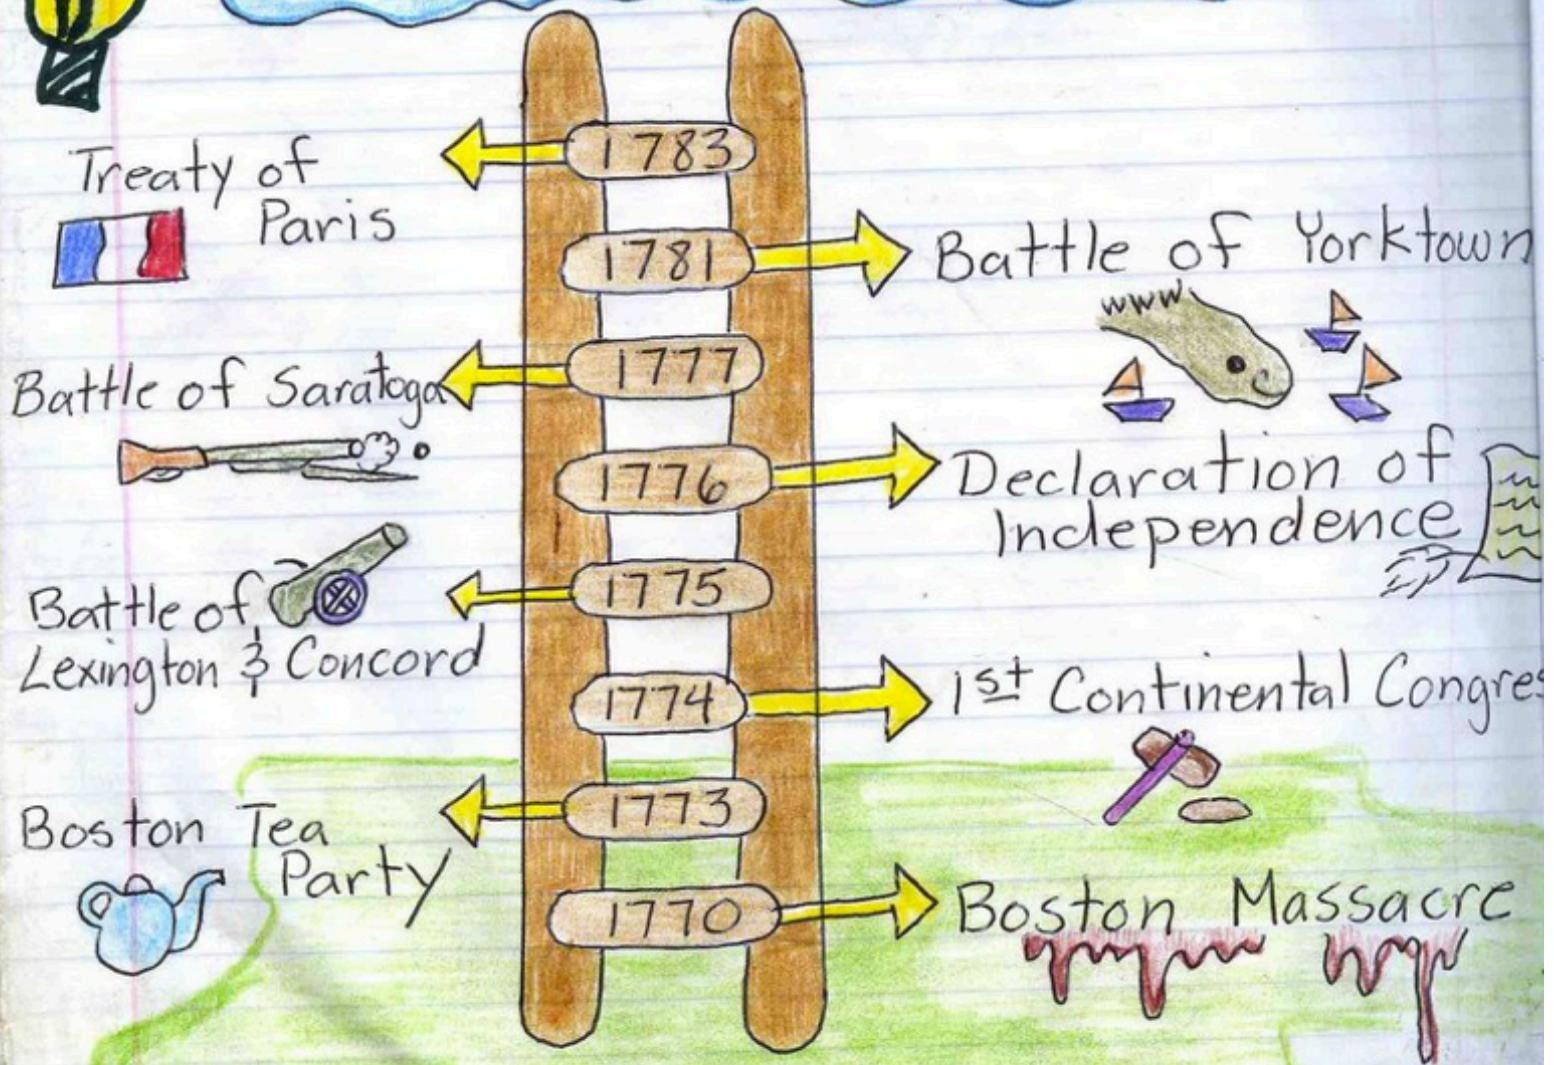 1783
Treaty of
Paris
1781
Battle of Yorktown
1777
Battle of Saratoga
1776
Declaration of
Independence
1775
Battle of
Lexington & Concord
1774
1st Continental Congres
1773
Boston Tea
Party
1770
Boston Massacre